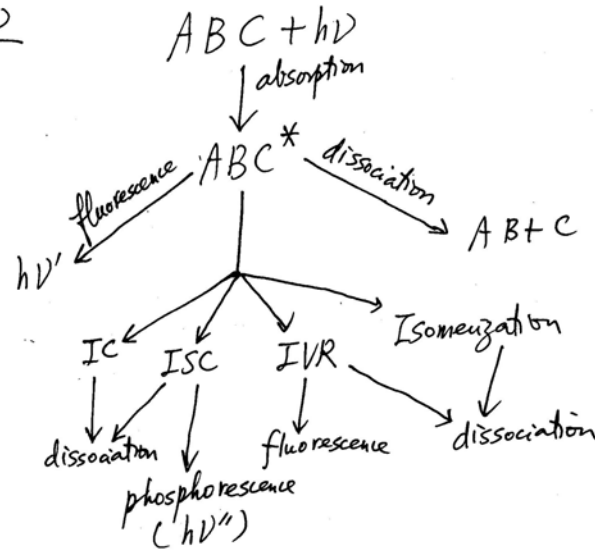 ABC + hν
absorption
ABC*
fluorescence
dissociation
hν'
AB + C
IC
ISC
IVR
Isomerization
dissociation
phosphorescence
(hν'')
fluorescence
dissociation